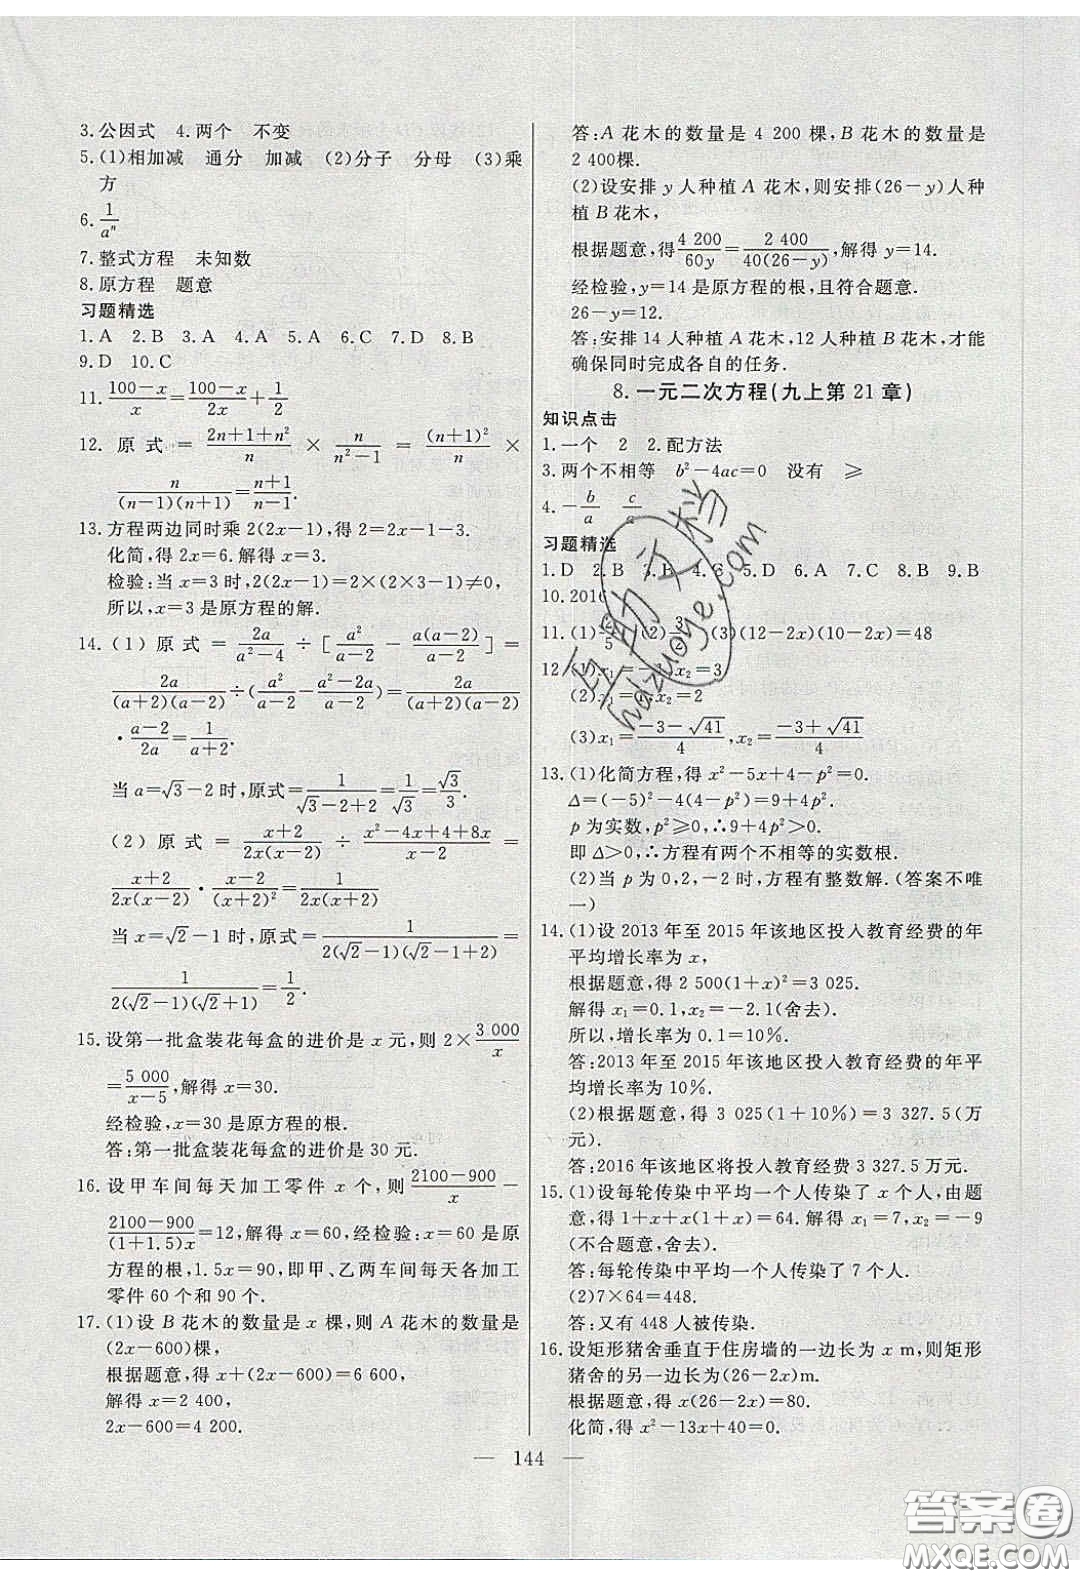 3.公因式　4.两个　不变
5.(1)相加减　通分　加减　(2)分子　分母　(3)乘
方
6. 1/aⁿ
7.整式方程　未知数
8.原方程　题意
习题精选
1.A　2.B　3.A　4.A　5.C　6.A　7.D　8.B
9.D　10.C
11. (100-x)/x = (100-x)/2x + 1/2
12. 原式 = (2n+1+n²)/n × n/(n²-1) = (n+1)²/n ×
n/((n-1)(n+1)) = (n+1)/(n-1).
13.方程两边同时乘 2(2x-1),得 2=2x-1-3.
化简,得 2x=6.解得 x=3.
检验:当 x=3 时,2(2x-1)=2×(2×3-1)≠0,
所以,x=3 是原方程的解.
14.(1)原式 = 2a/(a²-4) ÷ [a²/(a-2) - a(a-2)/(a-2)] =
2a/((a+2)(a-2)) ÷ (a²/(a-2) - (a²-2a)/(a-2)) = 2a/((a+2)(a-2))
· (a-2)/2a = 1/(a+2).
当 a=√3-2 时,原式 = 1/(√3-2+2) = 1/√3 = √3/3.
(2)原式 = (x+2)/(2x(x-2)) ÷ (x²-4x+4+8x)/(x-2) =
(x+2)/(2x(x-2)) · (x-2)/(x+2)² = 1/(2x(x+2))
当 x=√2-1 时,原式 = 1/(2(√2-1)(√2-1+2)) =
1/(2(√2-1)(√2+1)) = 1/2.
15.设第一批盒装花每盒的进价是 x 元,则 2× 3 000/x
= 5 000/(x-5),解得 x=30.
经检验,x=30 是原方程的根.
答:第一批盒装花每盒的进价是 30 元.
16.设甲车间每天加工零件 x 个,则 (2100-900)/x -
(2100-900)/((1+1.5)x) =12,解得 x=60,经检验:x=60 是原
方程的根,1.5x=90,即甲、乙两车间每天各加工
零件 60 个和 90 个.
17.(1)设 B 花木的数量是 x 棵,则 A 花木的数量是
(2x-600)棵,
根据题意,得 x+(2x-600)=6 600,
解得 x=2 400,
2x-600=4 200.
答:A 花木的数量是 4 200 棵,B 花木的数量是
2 400棵.
(2)设安排 y 人种植 A 花木,则安排(26-y)人种
植 B 花木,
根据题意,得 4 200/60y = 2 400/(40(26-y)),解得 y=14.
经检验,y=14 是原方程的根,且符合题意.
26-y=12.
答:安排 14 人种植 A 花木,12 人种植 B 花木,才能
确保同时完成各自的任务.
8.一元二次方程(九上第 21 章)
知识点击
1.一个　2　2.配方法
3.两个不相等　b²-4ac=0　没有　≥
4.-b/a　c/a
习题精选
1.D　2.B　3.B　4.C　5.D　6.A　7.C　8.B　9.B
10.2016
11.(1) 2/5　(2) 　(3)(12-2x)(10-2x)=48
12.(1)x₁=-1,x₂=3
(2)x₁=1,x₂=2
(3)x₁=(-3-√41)/4,x₂=(-3+√41)/4
13.(1)化简方程,得 x²-5x+4-p²=0.
Δ=(-5)²-4(4-p²)=9+4p².
p 为实数,p²≥0,∴9+4p²>0.
即 Δ>0,∴方程有两个不相等的实数根.
(2)当 p 为 0,2,-2 时,方程有整数解.(答案不唯
一)
14.(1)设 2013 年至 2015 年该地区投入教育经费的年
平均增长率为 x,
根据题意,得 2 500(1+x)²=3 025.
解得 x₁=0.1,x₂=-2.1(舍去).
所以,增长率为 0.1=10%.
答:2013 年至 2015 年该地区投入教育经费的年平
均增长率为 10%.
(2)根据题意,得 3 025(1+10%)=3 327.5(万
元).
答:2016 年该地区将投入教育经费 3 327.5 万元.
15.(1)设每轮传染中平均一个人传染了 x 个人,由题
意,得 1+x+x(1+x)=64.解得 x₁=7,x₂=-9
(不合题意,舍去).
答:每轮传染中平均一个人传染了 7 个人.
(2)7×64=448.
答:又有 448 人被传染.
16.设矩形猪舍垂直于住房墙的一边长为 x m,则矩形
猪舍的另一边长为(26-2x)m.
根据题意,得 x(26-2x)=80.
化简,得 x²-13x+40=0.
— 144 —
答案圈
MXQE.COM
互助文档
hdzuoye.com